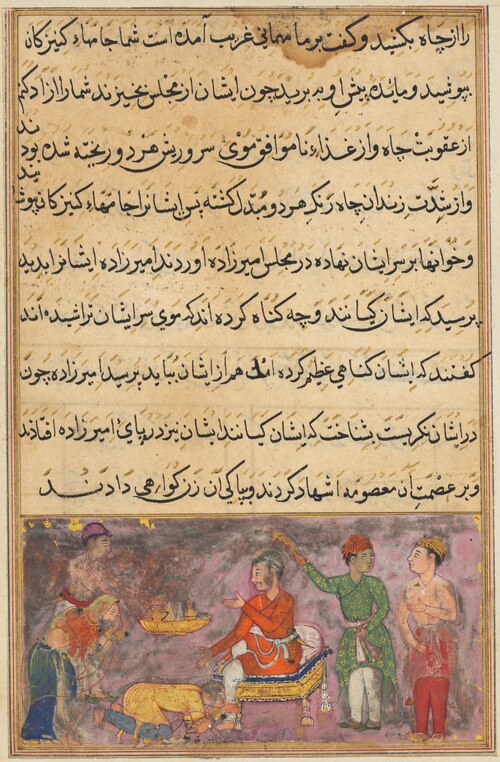 را از چاه بکشید و گفت بر ما مهمانی غریب آمده است شما جامهاء کنیزکان
بپوشید و مائده پیش او بمیرید چون ایشان از مجلس بخیزند شما را آزاد کنم
از عقوبت چاه و از غذاء ناموافق موی سر و ریش هر دو ریخته شده بود
و از شدّت زندان چاه رنگ هر دو مبدل گشته پس ایشانرا جامهاء کنیزکان
و خوانها بر سر ایشان نهاده در مجلس امیرزاده اوردند امیرزاده ایشانرا بدید
پرسید که ایشان کیانند و چه گناه کرده اند که موی سر ایشان تراشیده اند
گفتند که ایشان گناهی عظیم کرده اند هم از ایشان بباید پرسید امیرزاده چون
در ایشان نگریست بشناخت که ایشان کیانند ایشان نیز در پای امیرزاده افتادند
و بر عصمت آن معصومه اشهاد کردند و بپاکی آن زن گواهی دادند